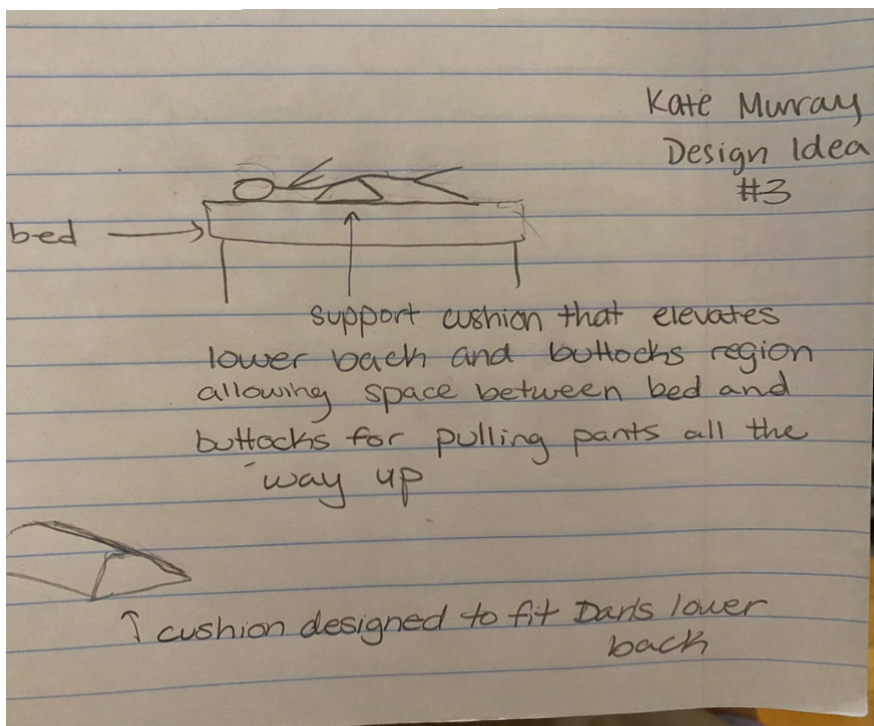 Kate Murray
Design Idea
#3
bed
support cushion that elevates
lower back and buttocks region
allowing space between bed and
buttocks for pulling pants all the
way up
cushion designed to fit Dan's lower
back